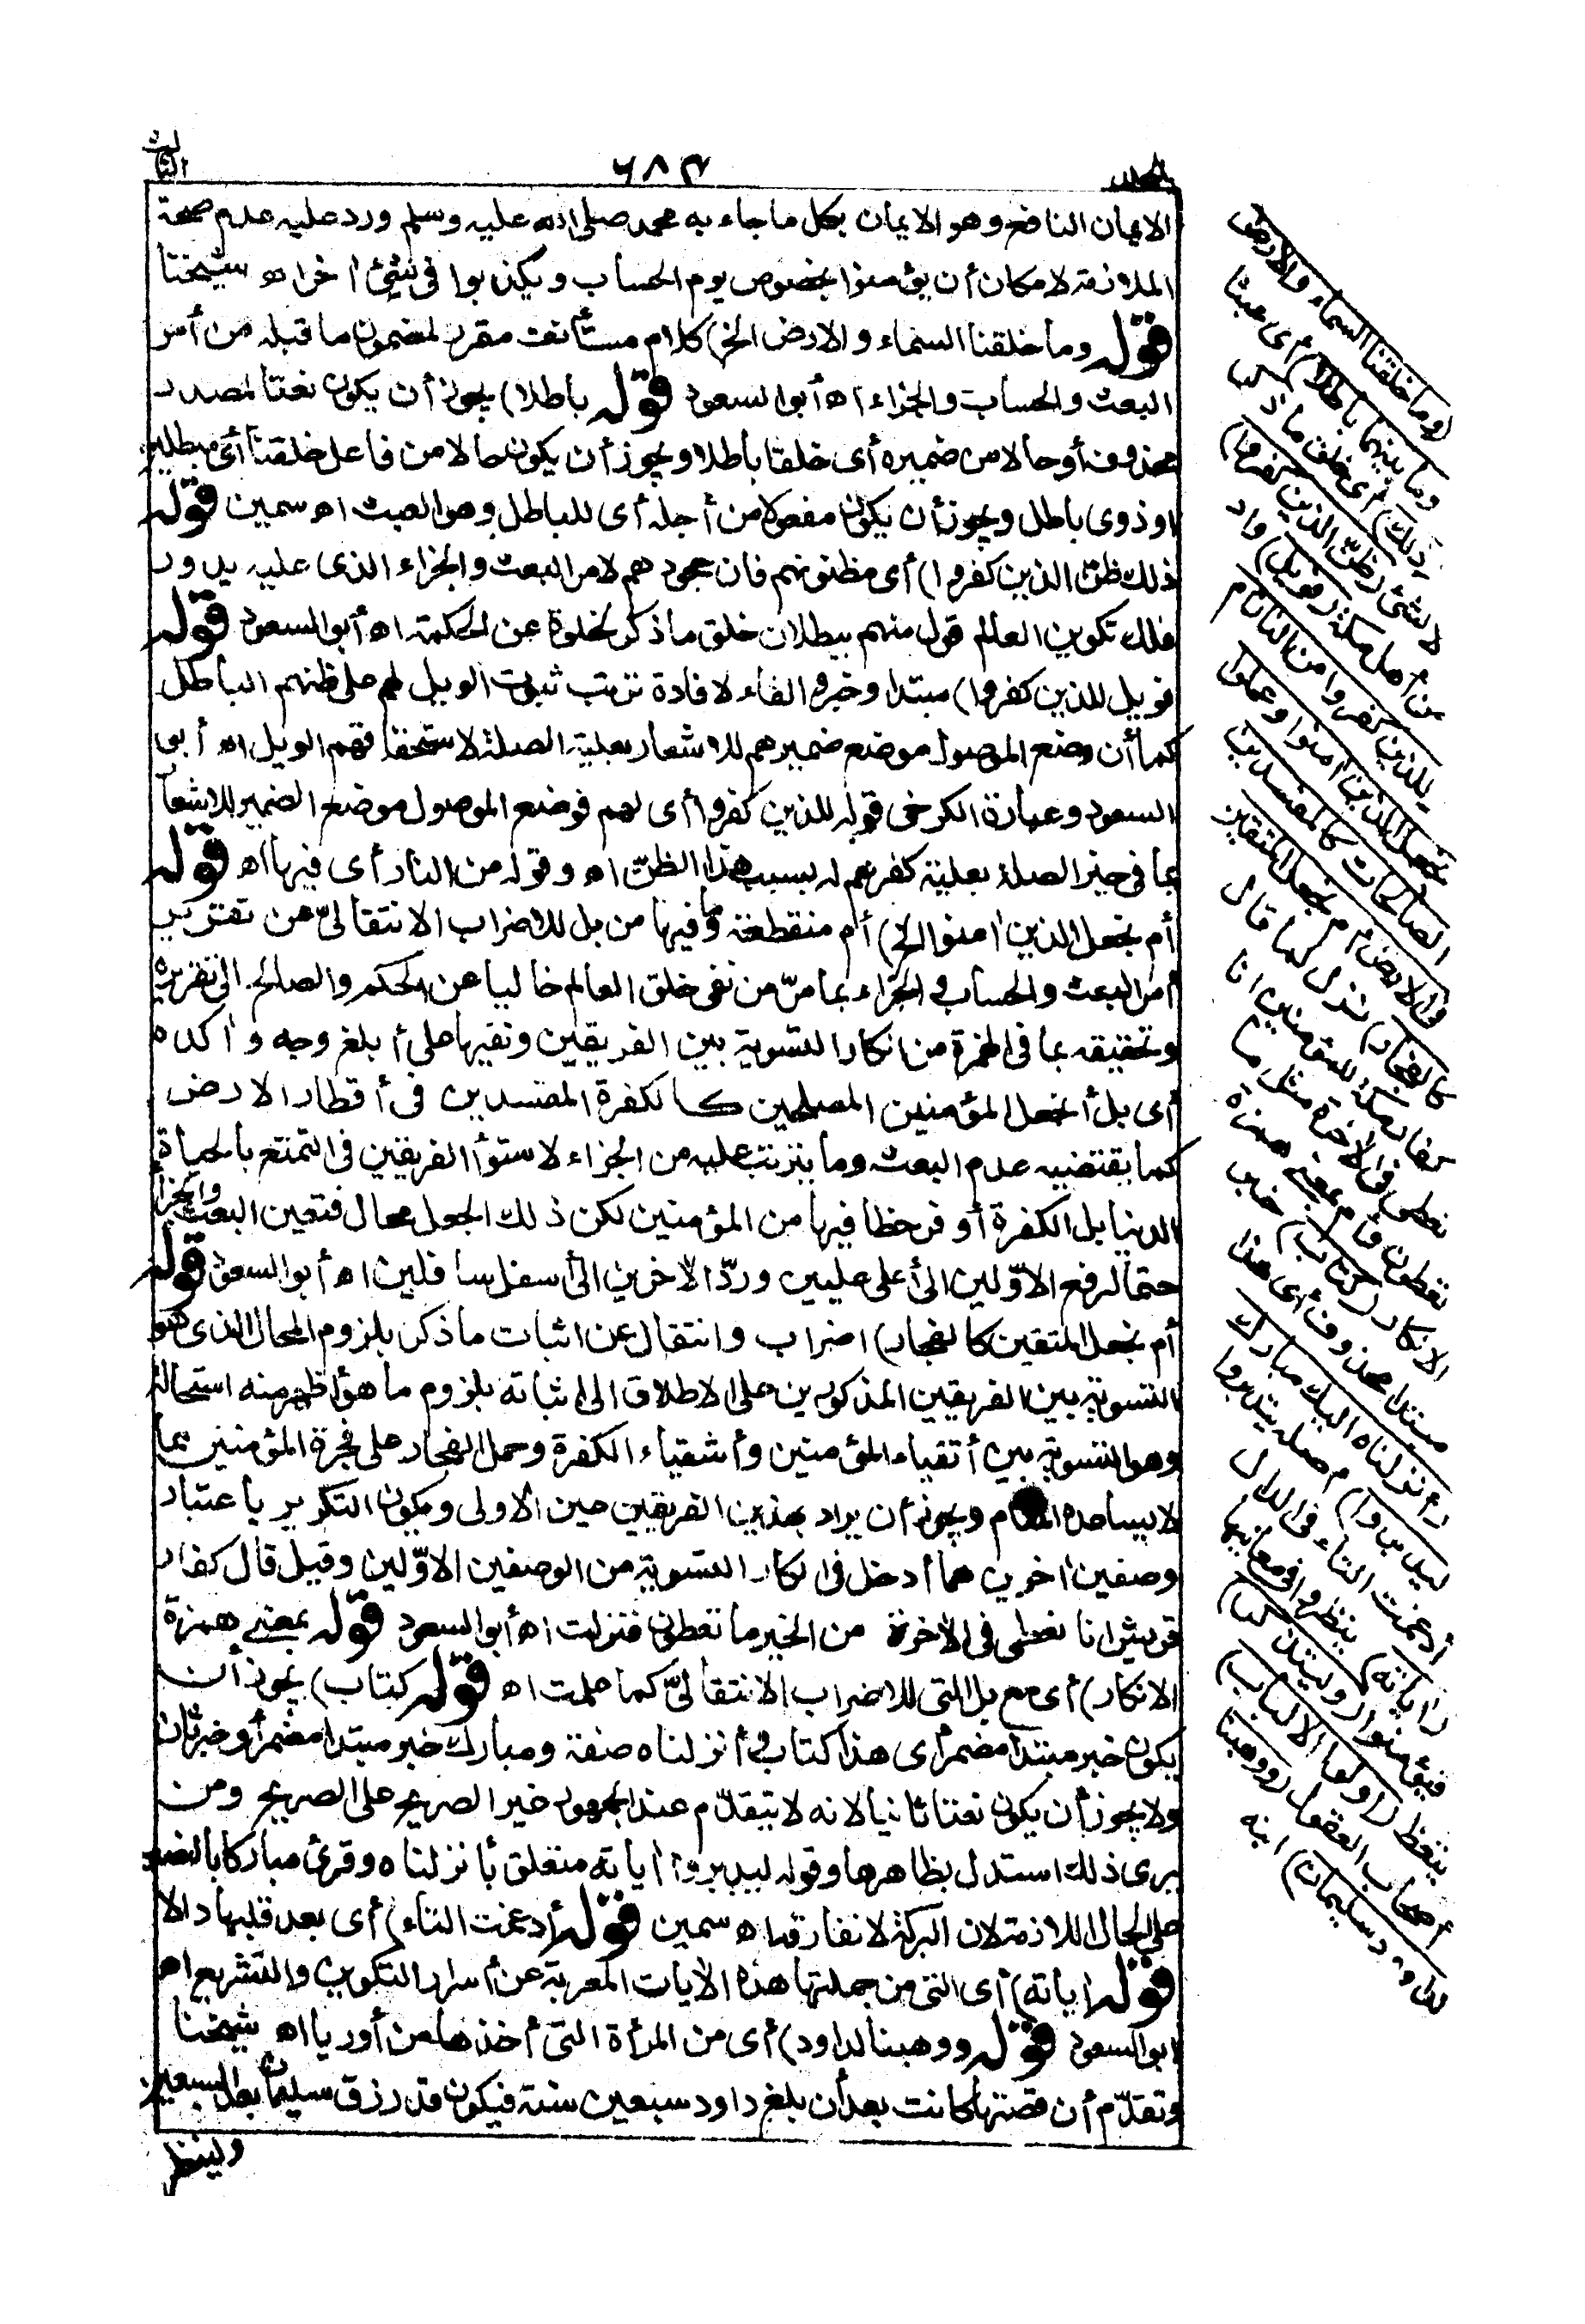 المجلد
٦٨٣
الثالث
الايمان النافع وهو الايمان بكل ما جاء به محمد صلى الله عليه وسلم ورد عليه عدم صحة
الملازمة لامكان أن يؤمنوا بخصوص يوم الحساب ويكذبوا فى شئ اخر اه شيخنا
قوله وما خلقنا السماء والارض الخ) كلام مستأنف مقرر لمضمون ما قبله من أمر
البعث والحساب والجزاء اه أبو السعود قوله باطلا) يجوز أن يكون نعتا لمصدر
محذوف أو حالا من ضميره أى خلقا باطلا ويجوز أن يكون حالا من فاعل خلقنا أى مبطلين
او ذوى باطل ويجوز أن يكون مفعولا من أجله أى للباطل وهو العبث اه سمين قوله
ذلك ظن الذين كفروا) أى مظنونهم فان جحودهم لامر البعث والجزاء الذى عليه يدور
فلك تكوين العالم قول منهم ببطلان خلق ما ذكر لخلوه عن الحكمة اه أبو السعود قوله
فويل للذين كفروا) مبتدا وخبر والفاء لافادة ترتب ثبوت الويل لهم على ظنهم الباطل
كما أن وضع الموصول موضع ضميرهم للاشعار بعلية الصلة لاستحقاقهم الويل اه أبو
السعود وعبارة الكرخى قوله للذين كفروا أى لهم فوضع الموصول موضع الضمير للاشعار
بما فى حيز الصلة بعلية كفرهم له بسبب هذا الظن اه وقوله من النار أى فيها اه قوله
أم نجعل الذين امنوا الخ) أم منقطعة وما فيها من بل للاضراب الانتقالىّ عن تقرير
أمر البعث والحساب والجزاء بما مرّ من نفى خلق العالم خاليا عن الحكم والصالح الى تقريره
وتحقيقه بما فى الهمزة من انكار التسوية بين الفريقين ونفيها على أبلغ وجه واكده
أى بل أنجعل المؤمنين المصلحين كالكفرة المفسدين فى أقطار الارض
كما يقتضيه عدم البعث وما يترتب عليه من الجزاء لاستواء الفريقين فى التمتع بالحياة
الدنيا بل الكفرة أوفر حظا فيها من المؤمنين لكن ذلك الجعل محال فتعين البعث والجزاء
حتما لرفع الاوّلين الى أعلى عليين وردّ الاخرين الى أسفل سافلين اه أبو السعود قوله
أم نجعل المتقين كالفجار) اضراب وانتقال عن اثبات ما ذكر بلزوم المحال الذى هو
التسوية بين الفريقين المذكورين على الاطلاق الى اثباته بلزوم ما هو أظهر منه استحالة
وهو التسوية بين أتقياء المؤمنين وأشقياء الكفرة وحمل الفجار على فجرة المؤمنين مما
لا يساعده المقام ويجوز أن يراد بهذين الفريقين عين الاولى ويكون التكرير باعتبار
وصفين اخرين هما أدخل فى انكار التسوية من الوصفين الاوّلين وقيل قال كفار
قريش انا نعطى فى الاخرة من الخير ما تعطون فنزلت اه أبو السعود قوله بمعنى همزة
الانكار) أى مع بل التى للاضراب الانتقالىّ كما علمت اه قوله كتاب) يجوز أن
يكون خبر مبتدأ مضمر أى هذا كتاب وأنزلناه صفة ومبارك خبر مبتدا مضمر أو خبر ثان
ولا يجوز أن يكون نعتا ثانيا لانه لا يتقدّم عند الجمهور غير الصريح على الصريح ومن
يرى ذلك استدل بظاهرها وقوله ليدبروا اياته متعلق بأنزلناه وقرئ مباركا بالنصب
على الحال اللازمة لان البركة لا تفارقه اه سمين قوله أدغمت التاء) أى بعد قلبها دالا
قوله اياته) أى التى من جملتها هذه الايات المعربة عن أسرار التكوين والتشريع اه
ابو السعود قوله ووهبنا لداود) أى من المرأة التى أخذها من أوريا اه شيخنا
وتقدّم أن قصتها كانت بعد أن بلغ داود سبعين سنة فيكون قد رزق سليمان بعد السبعين
ولينظر
(وما خلقنا السماء والارض
وما بينهما باطلا) أى عبثا
(ذلك) أى خلق ما ذكر
لا لشئ (ظنّ الذين كفروا)
من أهل مكة (فويل) واد
للذين كفروا من النار أم
نجعل الذين امنوا وعملوا
الصالحات كالمفسدين
فى الارض أم نجعل المتقين
كالفجار) نزل لما قال
كفار مكة للمؤمنين انا
نعطى فى الاخرة مثل ما
تعطون فأم بمعنى همزة
الانكار (كتاب) خبر
مبتدا محذوف أى هذا
(أنزلناه اليك مبارك
ليدبروا) أصله يتدبروا
أدغمت التاء فى الدال
(اياته) ينظروا فى معانيها
فيؤمنوا (وليتذكر)
يتعظ (أولوا الالباب)
أصحاب العقول (ووهبنا
لداود سليمان) ابنه